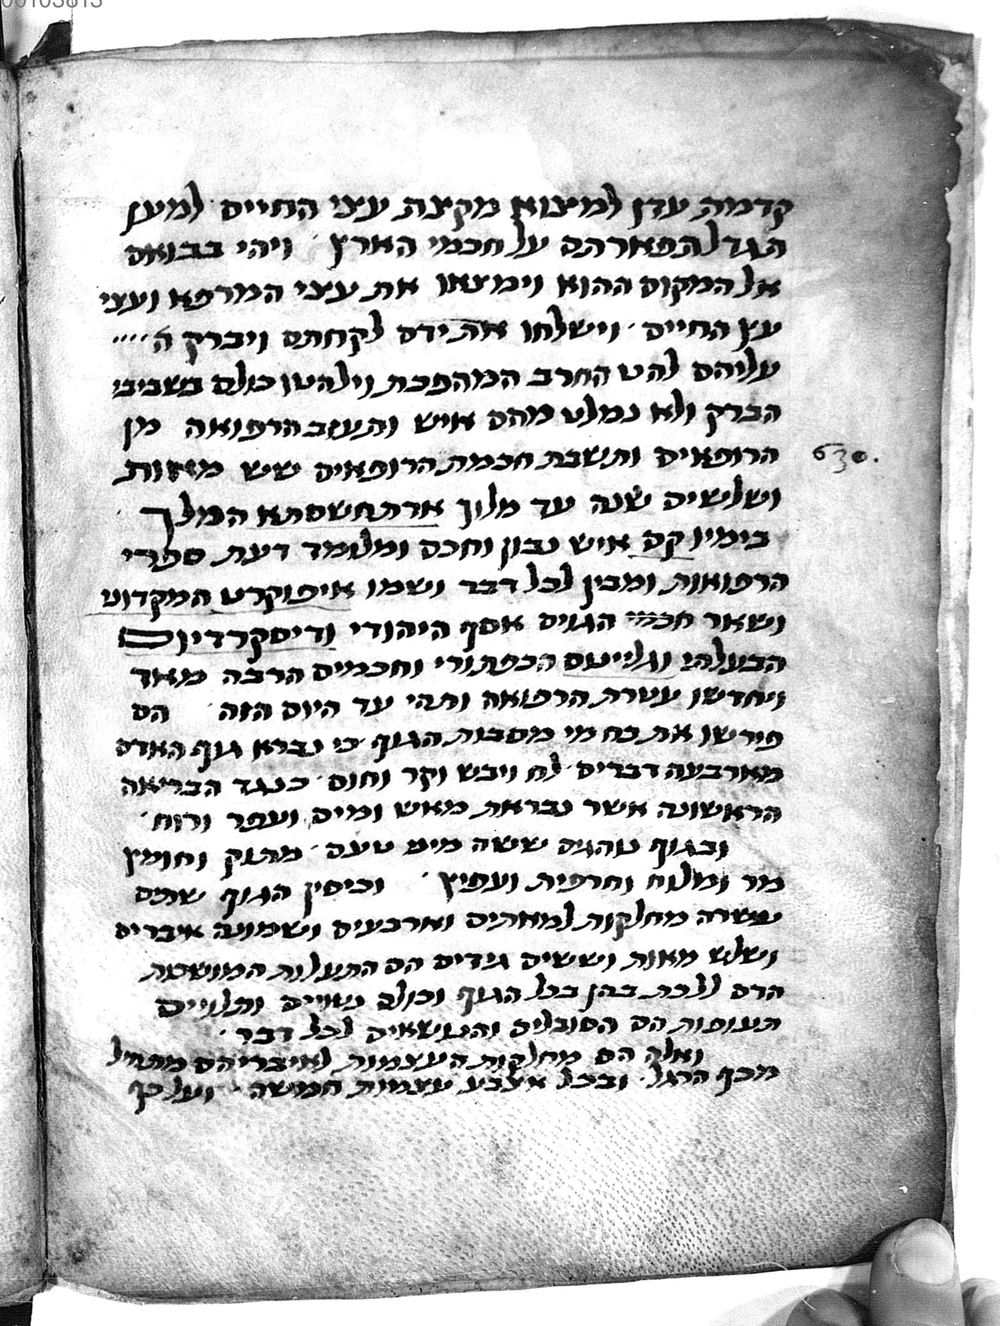 00103813
קדמת עדן למצוא מקצת עצי החיים למען
הגדל תפארתם על חכמי הארץ ויהי בבואם
אל המקום ההוא וימצאו את עצי המרפא ועצי
עץ החיים וישלחו את ידם לקחתם ויברק ה
עליהם להט החרב המהפכת וילהטו כולם בשביבי
הברק ולא נמלט מהם איש ותעזב הרפואה מן
הרופאים ותשבת חכמת הרופאים שש מאות
630.
ושלשים שנה עד מלוך ארתחשסתא המלך
בימיו קם איש נבון וחכם ומלומד דעת ספרי
הרפואות ומבין לכל דבר ושמו איפוקרט המקדוני
ושאר חכמי הגוים אסף היהודי ודיסקרדיוס
הבעלתי וגליינוס הכפתורי וחכמים הרבה מאד
ויחדשו עטרת הרפואה ותהי עד היום הזה הם
פירשו את כח מי מסבות הגוף כי נברא גוף האדם
מארבעה דברים לח ויבש וקר וחום כנגד הבריאה
הראשונה אשר נבראת מאש ומים ועפר ורוח
ובגוף נוהגים ששה מיני טעם מתוק וחומץ
מר ומלוח וחרפית ועפיץ וכיסין הגוף שתים
עשרה מחלקות למאתים וארבעים ושמונה איברים
ושלש מאות וששים גידים הם התעלות המושכות
הדם ללכת בהן בכל הגוף וכולם נטויים ותלויים
העצמות הם הסובלים והנושאים לכל דבר
ואלה הם מחלקות העצמות לאיבריהם מתחיל
מכף הרגל ובכל אצבע עצמות חמשה ועל כף